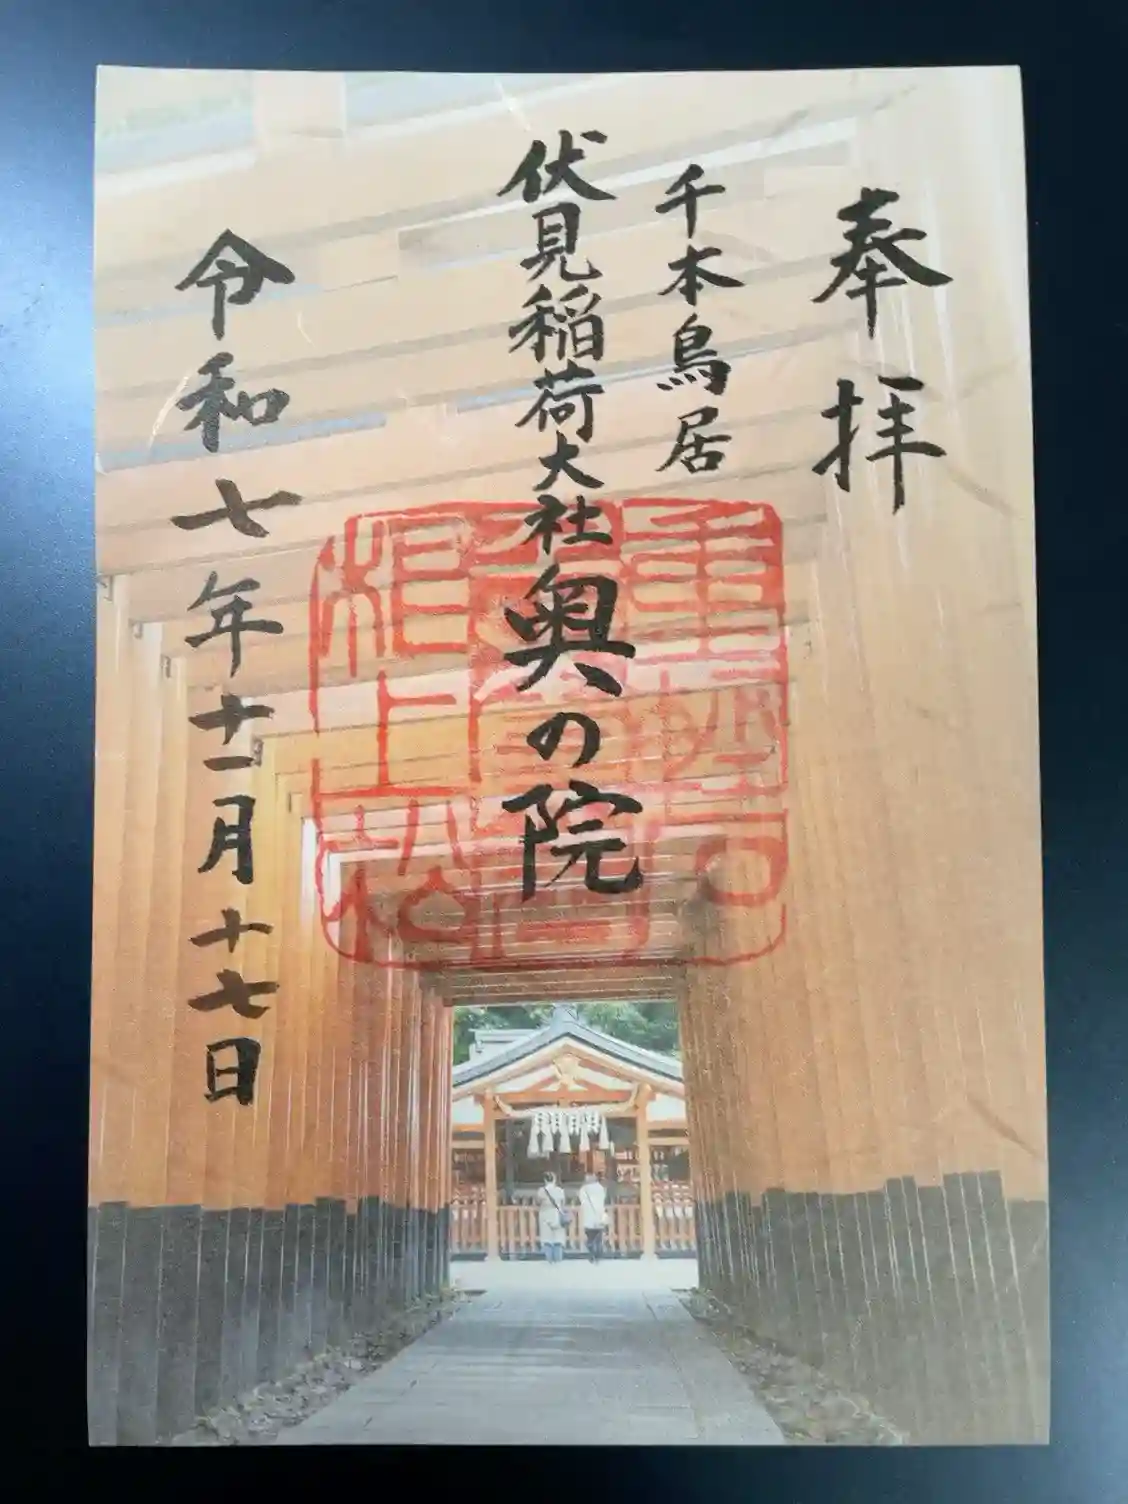 奉拝
千本鳥居
伏見稲荷大社奥の院
令和七年十一月十七日